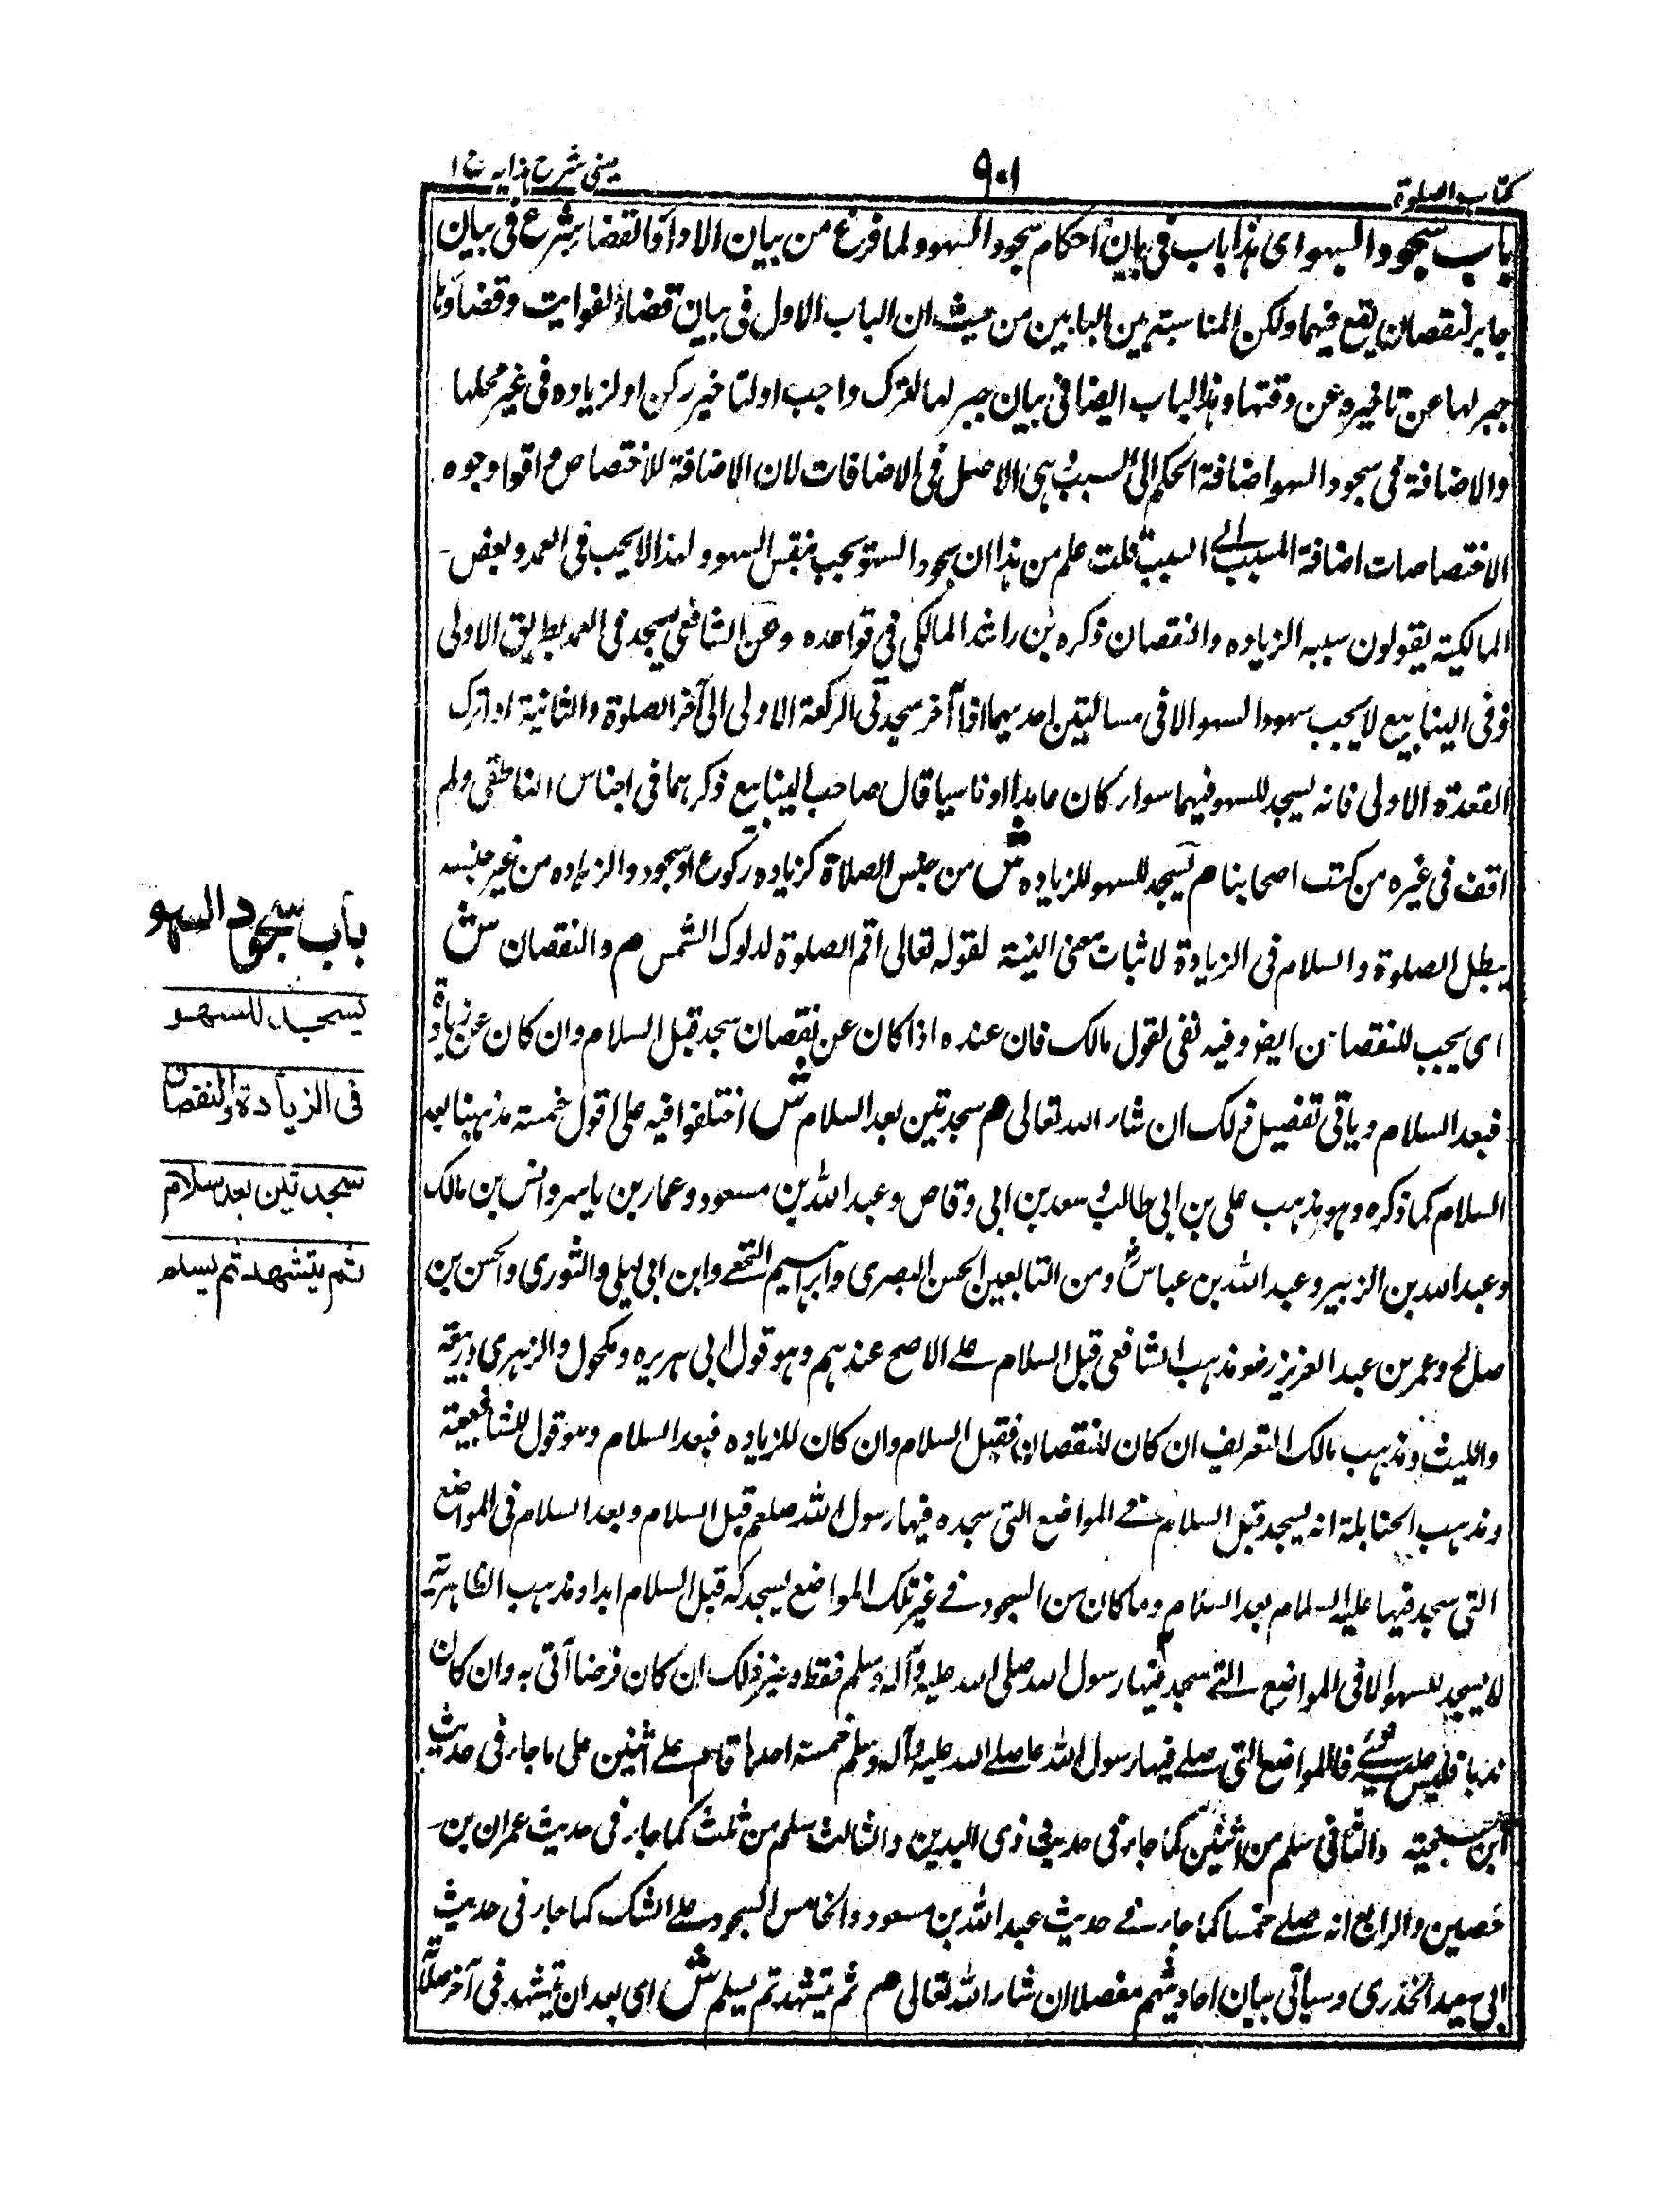 كتاب الصلوة
٩٠١
عینی شرح ہدایہ ج ١
باب سجود السهو ای هذا باب فی بیان احکام سجود السهو ولما فرغ من بیان الاداء والقضاء شرع فی بیان
جابر لنقصان یقع فیهما ولکن المناسبة بین البابین من حیث ان الباب الاول فی بیان قضاء الفوایت وقضاؤها
جبر لها عن تاخیره عن وقتها وهذا الباب ایضا فی بیان جبر لها لترک واجب او لتاخیر رکن او لزیاده فی غیر محلها
والاضافة فی سجود السهو اضافة الحکم الی السبب وهی الاصل فی الاضافات لان الاضافة للاختصاص م اقوا وجوه
الاختصاصات اضافة المسبب الی السبب قلت علم من هذا ان سجود السهو یجب بنفس السهو ولهذا لا یجب فی العمد وبعض
المالکیة یقولون سببه الزیاده والنقصان ذکره بن راشد المالکی فی قواعده وعن الشافعی یسجد فی العمد بطریق الاولی
وفی الینابیع لا یجب سهود السهو الا فی مسالتین احدیهما اذا آخر سجدتی الرکعة الاولی الی آخر الصلوة والثانیة اذا ترک
القعدة الاولی فانه یسجد للسهو فیهما سواء کان عامدا او ناسیا قال صاحب الینابیع ذکرهما فی اجناس الناطقی ولم
اقف فی غیره من کتب اصحابنا م یسجد للسهو للزیاده ش من جنس الصلاة کزیاده رکوع او سجود والزیاده من غیر جنسه
یبطل الصلوة والسلام فی الزیادة لاثبات معنی الغیة لقوله تعالی اقم الصلوة لدلوک الشمس م والنقصان ش
ای یجب للنقصان ایضا وفیه نفی لقول مالک فان عنده اذا کان عن نقصان سجد قبل السلام وان کان عن زیادة
فبعد السلام ویاتی تفصیل ذلک ان شاء الله تعالی م سجدتین بعد السلام ش اختلفوا فیه علی اقول خمسة مذهبنا بعد
السلام کما ذکره وهو مذهب علی بن ابی طالب و سعد بن ابی وقاص وعبد الله بن مسعود وعمار بن یاسر وانس بن مالک
وعبد الله بن الزبیر وعبد الله بن عباس ومن التابعین الحسن البصری وابراهیم النخعی وابن ابی لیلی والثوری والحسن بن
صالح وعمر بن عبد العزیز رض ومذهب الشافعی قبل السلام علی الاصح عندهم وهو قول ابی هریره ومکحول والزهری وربیعة
واللیث ومذهب مالک التعریف ان کان للنقصان فقبل السلام وان کان للزیاده فبعد السلام وهو قول للشافعیة
ومذهب الحنابلة انه یسجد قبل السلام فی المواضع التی سجده فیها رسول الله صلعم قبل السلام وبعد السلام فی المواضع
التی سجد فیها علیه السلام بعد السلام وما کان من السجود فی غیر تلک المواضع یسجد له قبل السلام ابدا ومذهب الظاهریة
لا یسجد للسهو الا فی المواضع التی سجد فیها رسول الله صلی الله علیه وآله وسلم فقط وغیر ذلک ان کان فرضا آتی به وان کان
ندبا فلیس علیه شیء فالمواضع التی صلی فیها رسول الله صلی الله علیه وآله وسلم خمسة احدها قام علی اثنین علی ما جاء فی حدیث
ابن بحینة والثانی سلم من اثنین کما جاء فی حدیث ذی الیدین والثالث سلم من ثلث کما جاء فی حدیث عمران بن
حصین والرابع انه صلی خمسا کما جاء فی حدیث عبد الله بن مسعود والخامس السجود علی الشک کما جاء فی حدیث
ابی سعید الخدری وسیاتی بیان احادیثهم مفصلا ان شاء الله تعالی م ثم یتشهد ثم یسلم ش ای بعد ان یتشهد فی آخر صلاته
باب سجود السهو
یسجد للسهو
فی الزیادة والنقصان
سجدتین بعد السلام
ثم یتشهد ثم یسلم